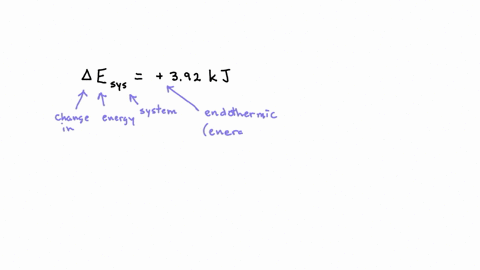 ΔE sys = + 3.92 kJ
change in
energy
system
endothermic
(ener